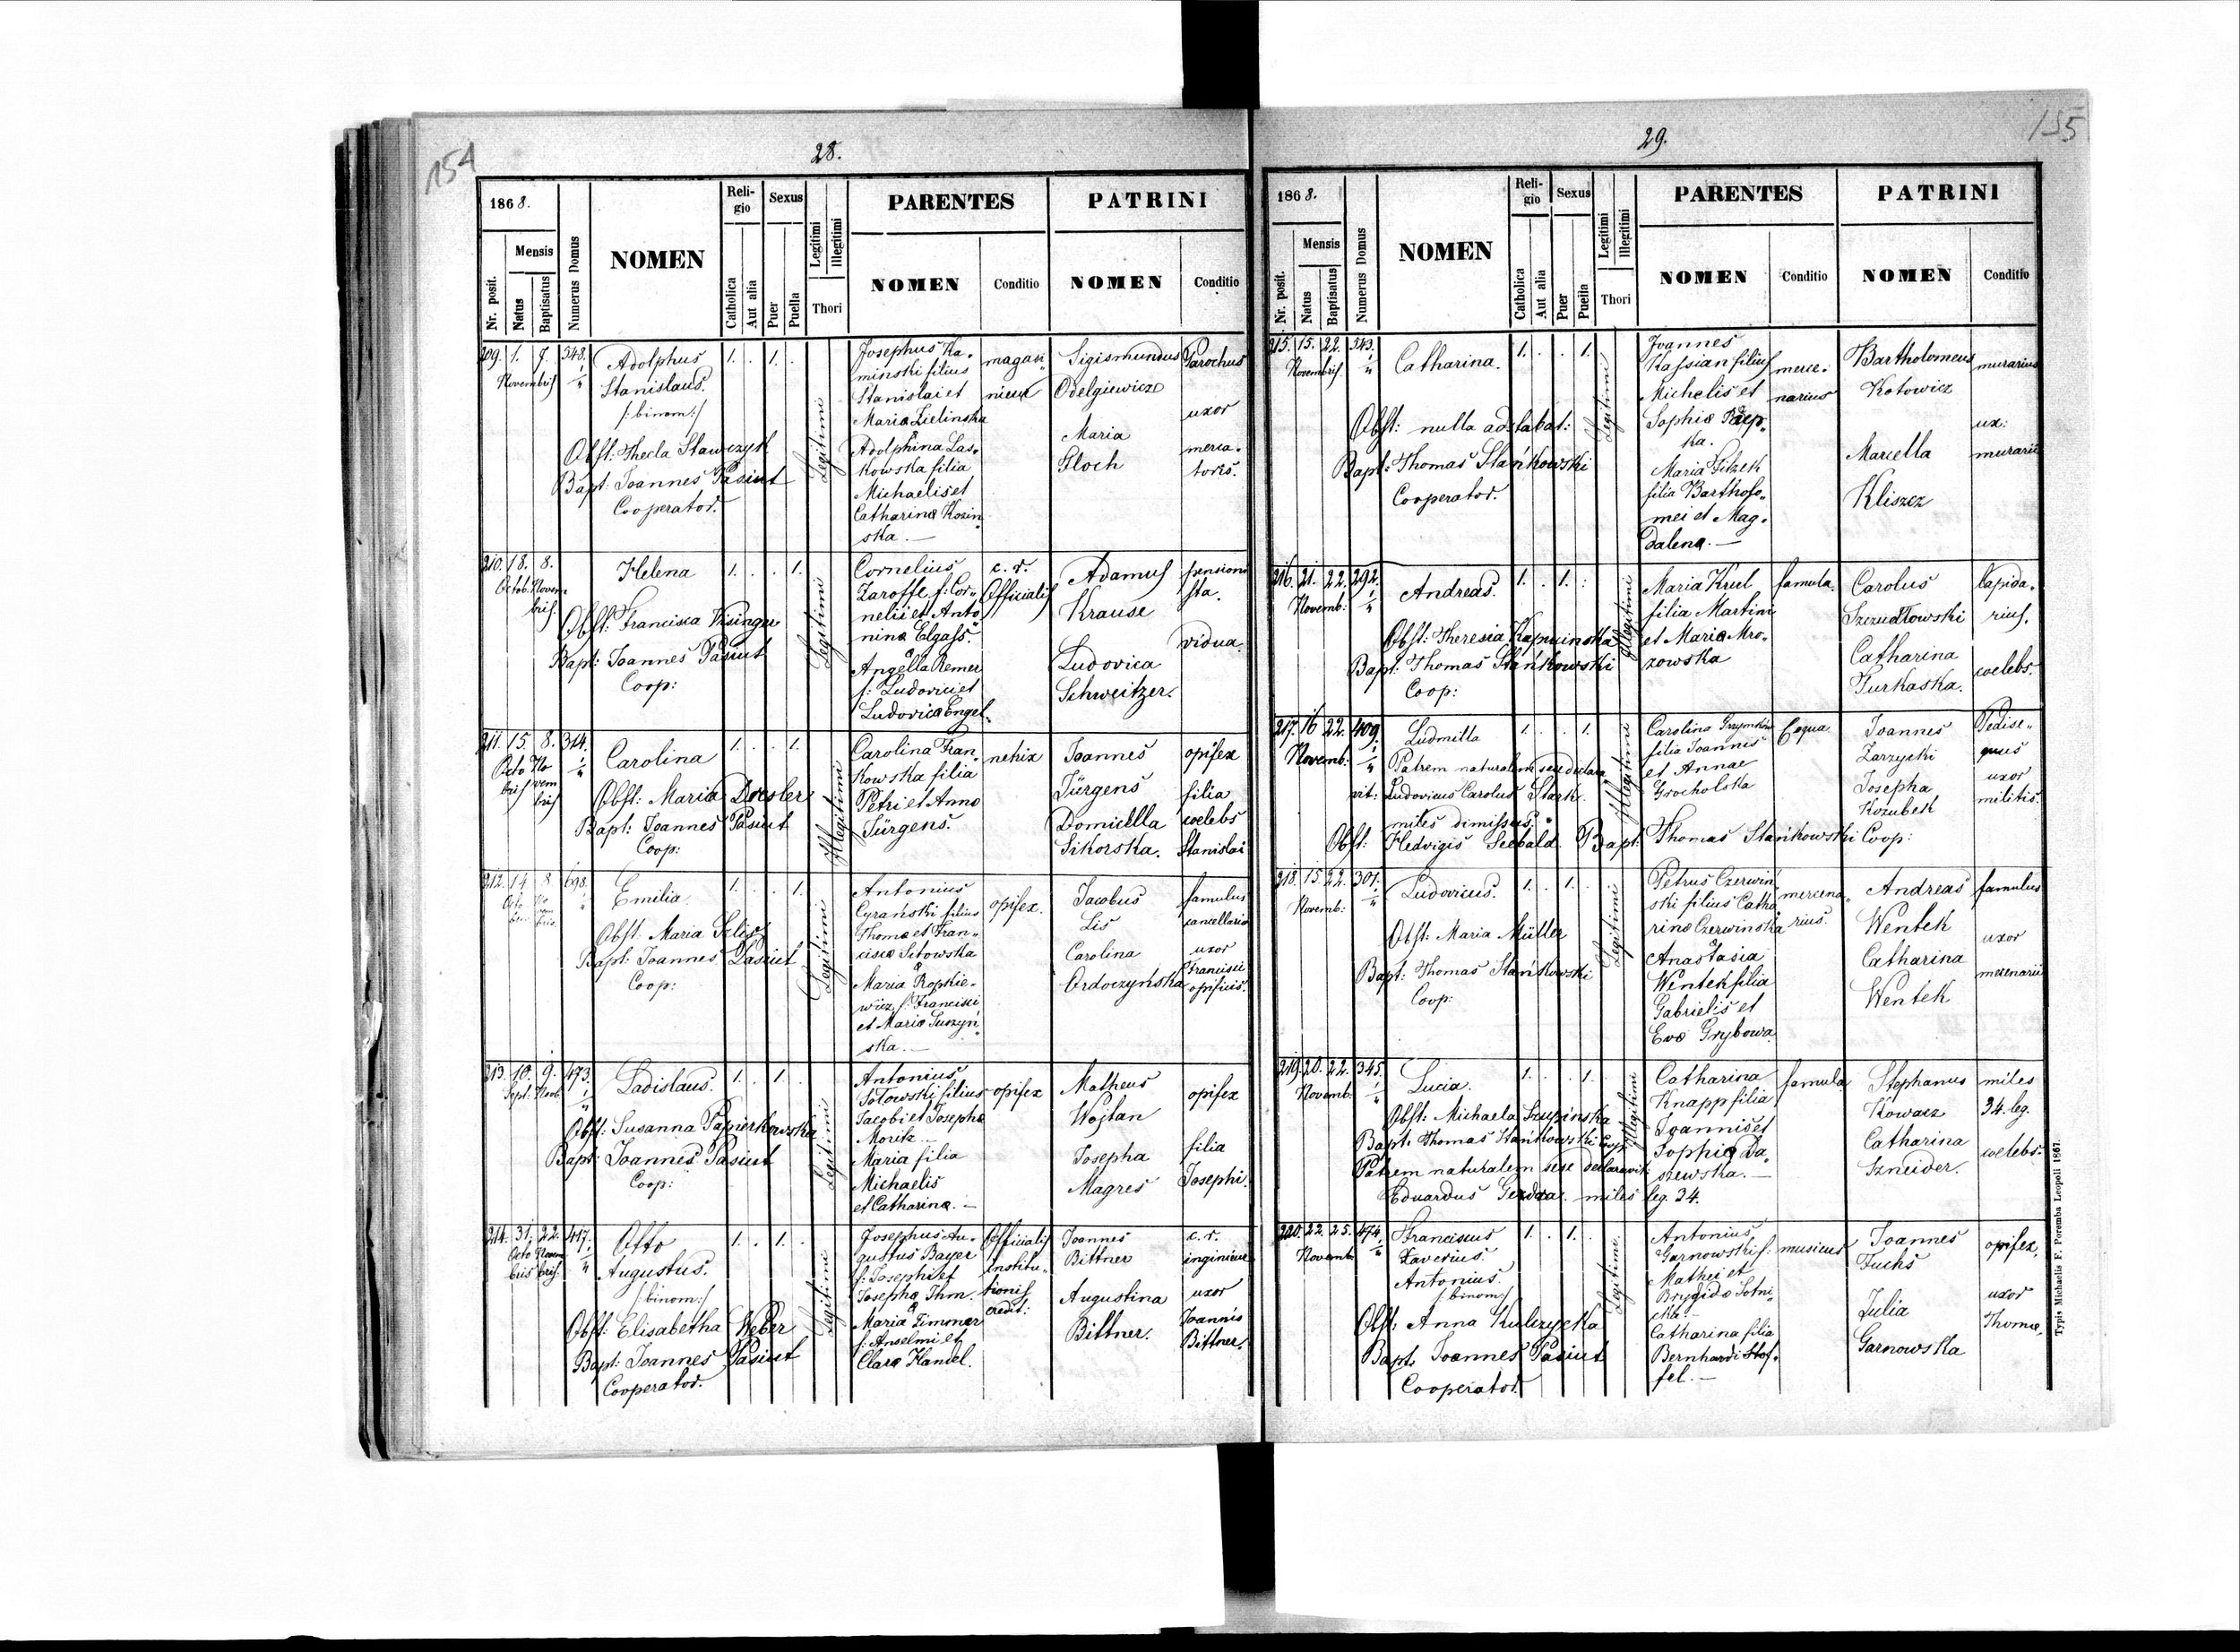 154
28.
1868.
Nr. posit.
Mensis
Natus
Baptisatus
Numerus Domus
NOMEN
Religio
Catholica
Aut alia
Sexus
Puer
Puella
Legitimi
Illegitimi
Thori
PARENTES
NOMEN
Conditio
PATRINI
NOMEN
Conditio
209. 1. 7. 548.
Novembris
Adolphus
Stanislaus.
/:binom:/
Obst: Thecla Stawczyk
Bapt: Joannes Pasiut
Cooperator.
1. . 1. .
Legitimi
Josephus Ka-
minski filius
Stanislai et
Maria Zielinska
Adolphina Las-
kowska filia
Michaelis et
Catharina Kozin
ska.—
magazi
nieur
Sigismundus
Odelgiewicz
Maria
Floch
Parochus
uxor
merca-
toris.
210. 18. 8.
Octob. Novem
bris
Helena
Obst: Francisca
Bapt: Joannes Pasiut
Coop:
1. . . 1.
Legitimi
Cornelius
Zaroffe f: Cor-
nelii et Anto
nina Elgass.
Angella Remer
f: Ludovici et
Ludovica Engel.
c. r.
Officialis
Adamus
Krause
Ludovica
Schweitzer.
pensioni
sta.
vidua.
211. 15. 8. 314.
Octo No
bris vem
bris
Carolina
Obst: Maria Doesler
Bapt: Joannes Pasiut
Coop:
1. . . 1.
Illegitimi
Carolina Fran-
kowska filia
Petri et Anna
Jürgens.
netrix
Joannes
Jürgens
Domicella
Sikorska.
opifex
filia
coelebs
Stanislai
212. 14 8 698.
Emilia
Obst: Maria
Bapt: Joannes Pasiut
Coop:
1. . . 1.
Legitimi
Antonius
Cyrański filius
Thoma et Fran-
cisca Sitowska
Maria Rophie-
wicz f: Francisci
et Maria Suszyń
ska.—
opifex.
Jacobus
Lis
Carolina
Ordoczyńska
famulus
cancellaria
uxor
Francisci
opificis.
213. 10. 9. 473.
Sept: Novb.
Ladislaus.
Obst: Susanna Papierkowska
Bapt: Joannes Pasiut
Coop:
1. . 1. .
Legitimi
Antonius
Sotowski filius
Jacobi et Josepha
Moritz
Maria filia
Michaelis
et Catharina.—
opifex
Matheus
Wojtan
Josepha
Magres
opifex
filia
Josephi.
214. 31. 22. 417.
Octo Novem
bris bris.
Otto
Augustus.
/:binom:/
Obst: Elisabetha Weber
Bapt: Joannes Pasiut
Cooperator.
1. . 1. .
Legitimi
Josephus Au-
gustus Bayer
f: Josephi et
Josepha Thm.
Maria Zimmer
f: Anselmi et
Clara Handel.
Officialis
institu-
tionis
credit:
Joannes
Bittner
Augustina
Bittner.
c. r.
inginieur
uxor
Joannis
Bittner.
155
29.
1868.
Nr. posit.
Mensis
Natus
Baptisatus
Numerus Domus
NOMEN
Religio
Catholica
Aut alia
Sexus
Puer
Puella
Legitimi
Illegitimi
Thori
PARENTES
NOMEN
Conditio
PATRINI
NOMEN
Conditio
215. 15. 22. 343.
Novembris.
Catharina.
Obst: nulla adstabat:
Bapt: Thomas Stańkowski
Cooperator.
1. . . 1.
Legitimi
Joannes
Kassian filius
Michelis et
Sophia
ka.
Maria Gitzek
filia Bartholo-
mei et Mag-
dalena.—
merce-
narius
Bartholomeus
Kotowicz
Marcella
Kliszcz
murarius
ux:
murarii
216. 21. 22. 292.
Novemb:
Andreas.
Obst: Theresia Kapuinska
Bapt: Thomas Stańkowski
Coop:
1. . 1. .
Illegitimi
Maria Krul
filia Martini
et Maria Mro-
zowska
famula.
Carolus
Szczudłowski
Catharina
Turkaska.
lapida-
rius.
coelebs.
217. 16 22. 409.
Novemb:
Ludmilla
Patrem naturalem sese declara-
vit: Ludovicus Carolus Stark.
miles dimissus.
Obst: Hedvigis Seebald. Bapt: Thomas Stańkowski Coop:
1. . . 1.
Illegitimi
Carolina
filia Joannis
et Annae
Grocholska
Coqua
Joannes
Zarzycki
Josepha
Kozubek
Pedise-
quus
uxor
militis.
218. 15 22. 301.
Novemb:
Ludovicus.
Obst: Maria Müller
Bapt: Thomas Stańkowski
Coop:
1. . 1. .
Legitimi
Petrus Czerwiń
ski filius Catha
rina Czerwinska
Anastasia
Wentek filia
Gabrielis et
Eva Grybowa.
mercena-
rius.
Andreas
Wentek
Catharina
Wentek
famulus
uxor
mercnarii
219. 20. 22. 345.
Novemb.
Lucia.
Obst: Michaela Szupinska
Bapt: Thomas Stańkowski Coop:
Patrem naturalem sese declaravit
Eduardus miles leg. 34.
1. . . 1.
Illegitimi
Catharina
Knapp filia
Joannis et
Sophia Da-
szewska.—
famula
Stephanus
Kowacz
Catharina
Szneider.
miles
34. leg.
coelebs.
220. 22. 25. 474.
Novemb.
Franciscus
Xaverius.
Antonius.
/:binom:/
Obst: Anna Kulczycka
Bapt. Joannes Pasiut
Cooperator.
1. . 1. .
Legitimi
Antonius
Garnowski f:
Mathei et
Brygida Sotni-
cka—
Catharina filia
Bernhardi Stof-
fel.—
musicus
Joannes
Fuchs
Julia
Garnowska
opifex.
uxor
Thomæ.
Typis Michaelis F. Poremba Leopoli 1867.